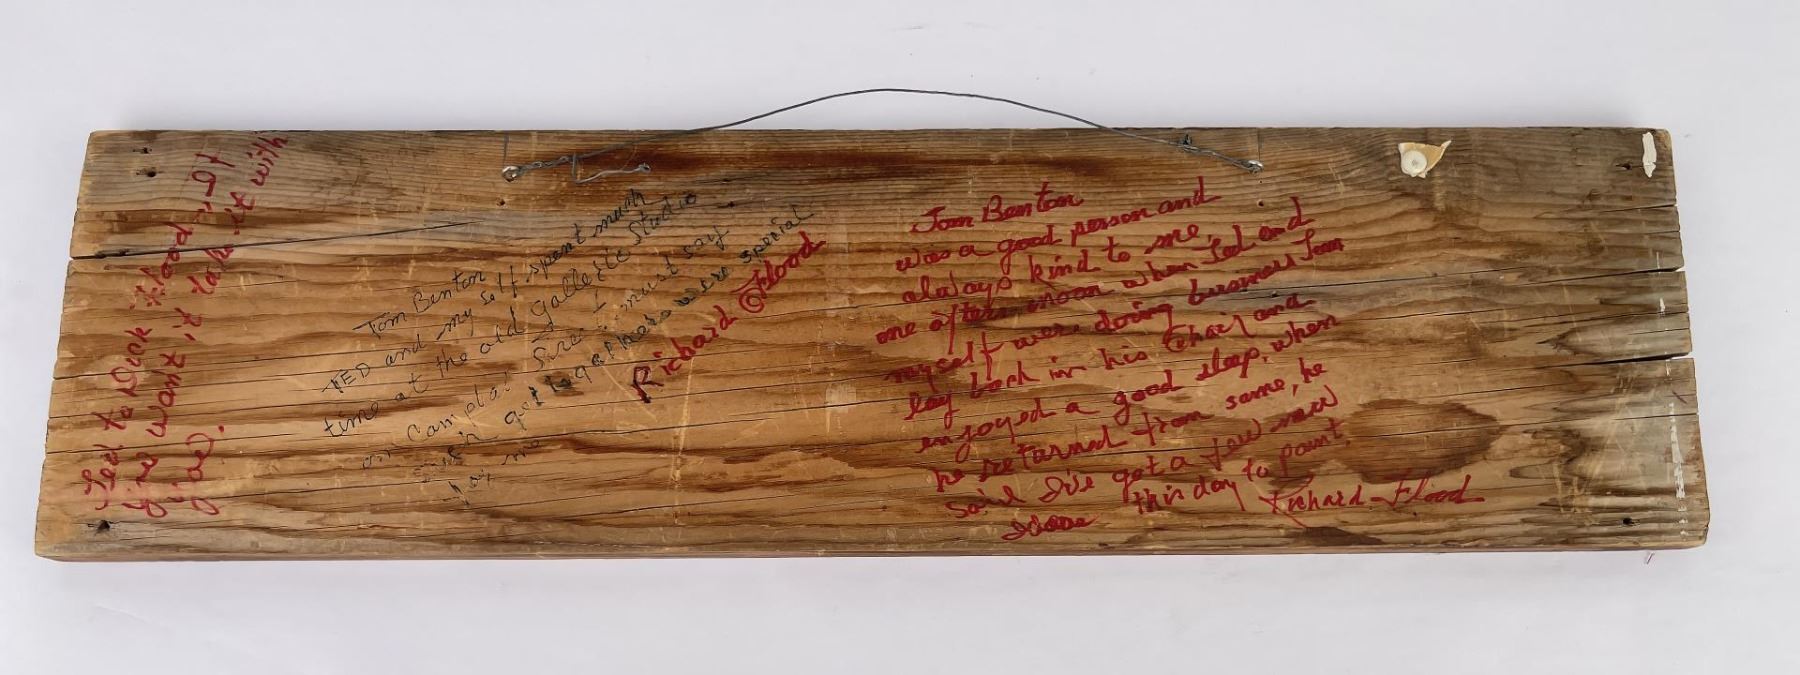 Ted to Dick Flood. If
you want it take it with
you.
Tom Benton
TED and my self spent much
time at the old gallerie Studio
on Street I must say
get to gathers were special
for me
Richard O Flood
Tom Benton
was a good person and
always kind to me.
one after-noon when Ted and
myself were doing business Tom
lay back in his Chair and
enjoyed a good sleep. when
he returned from same, he
said I've got a few new
Ideas this day to paint.
Richard Flood